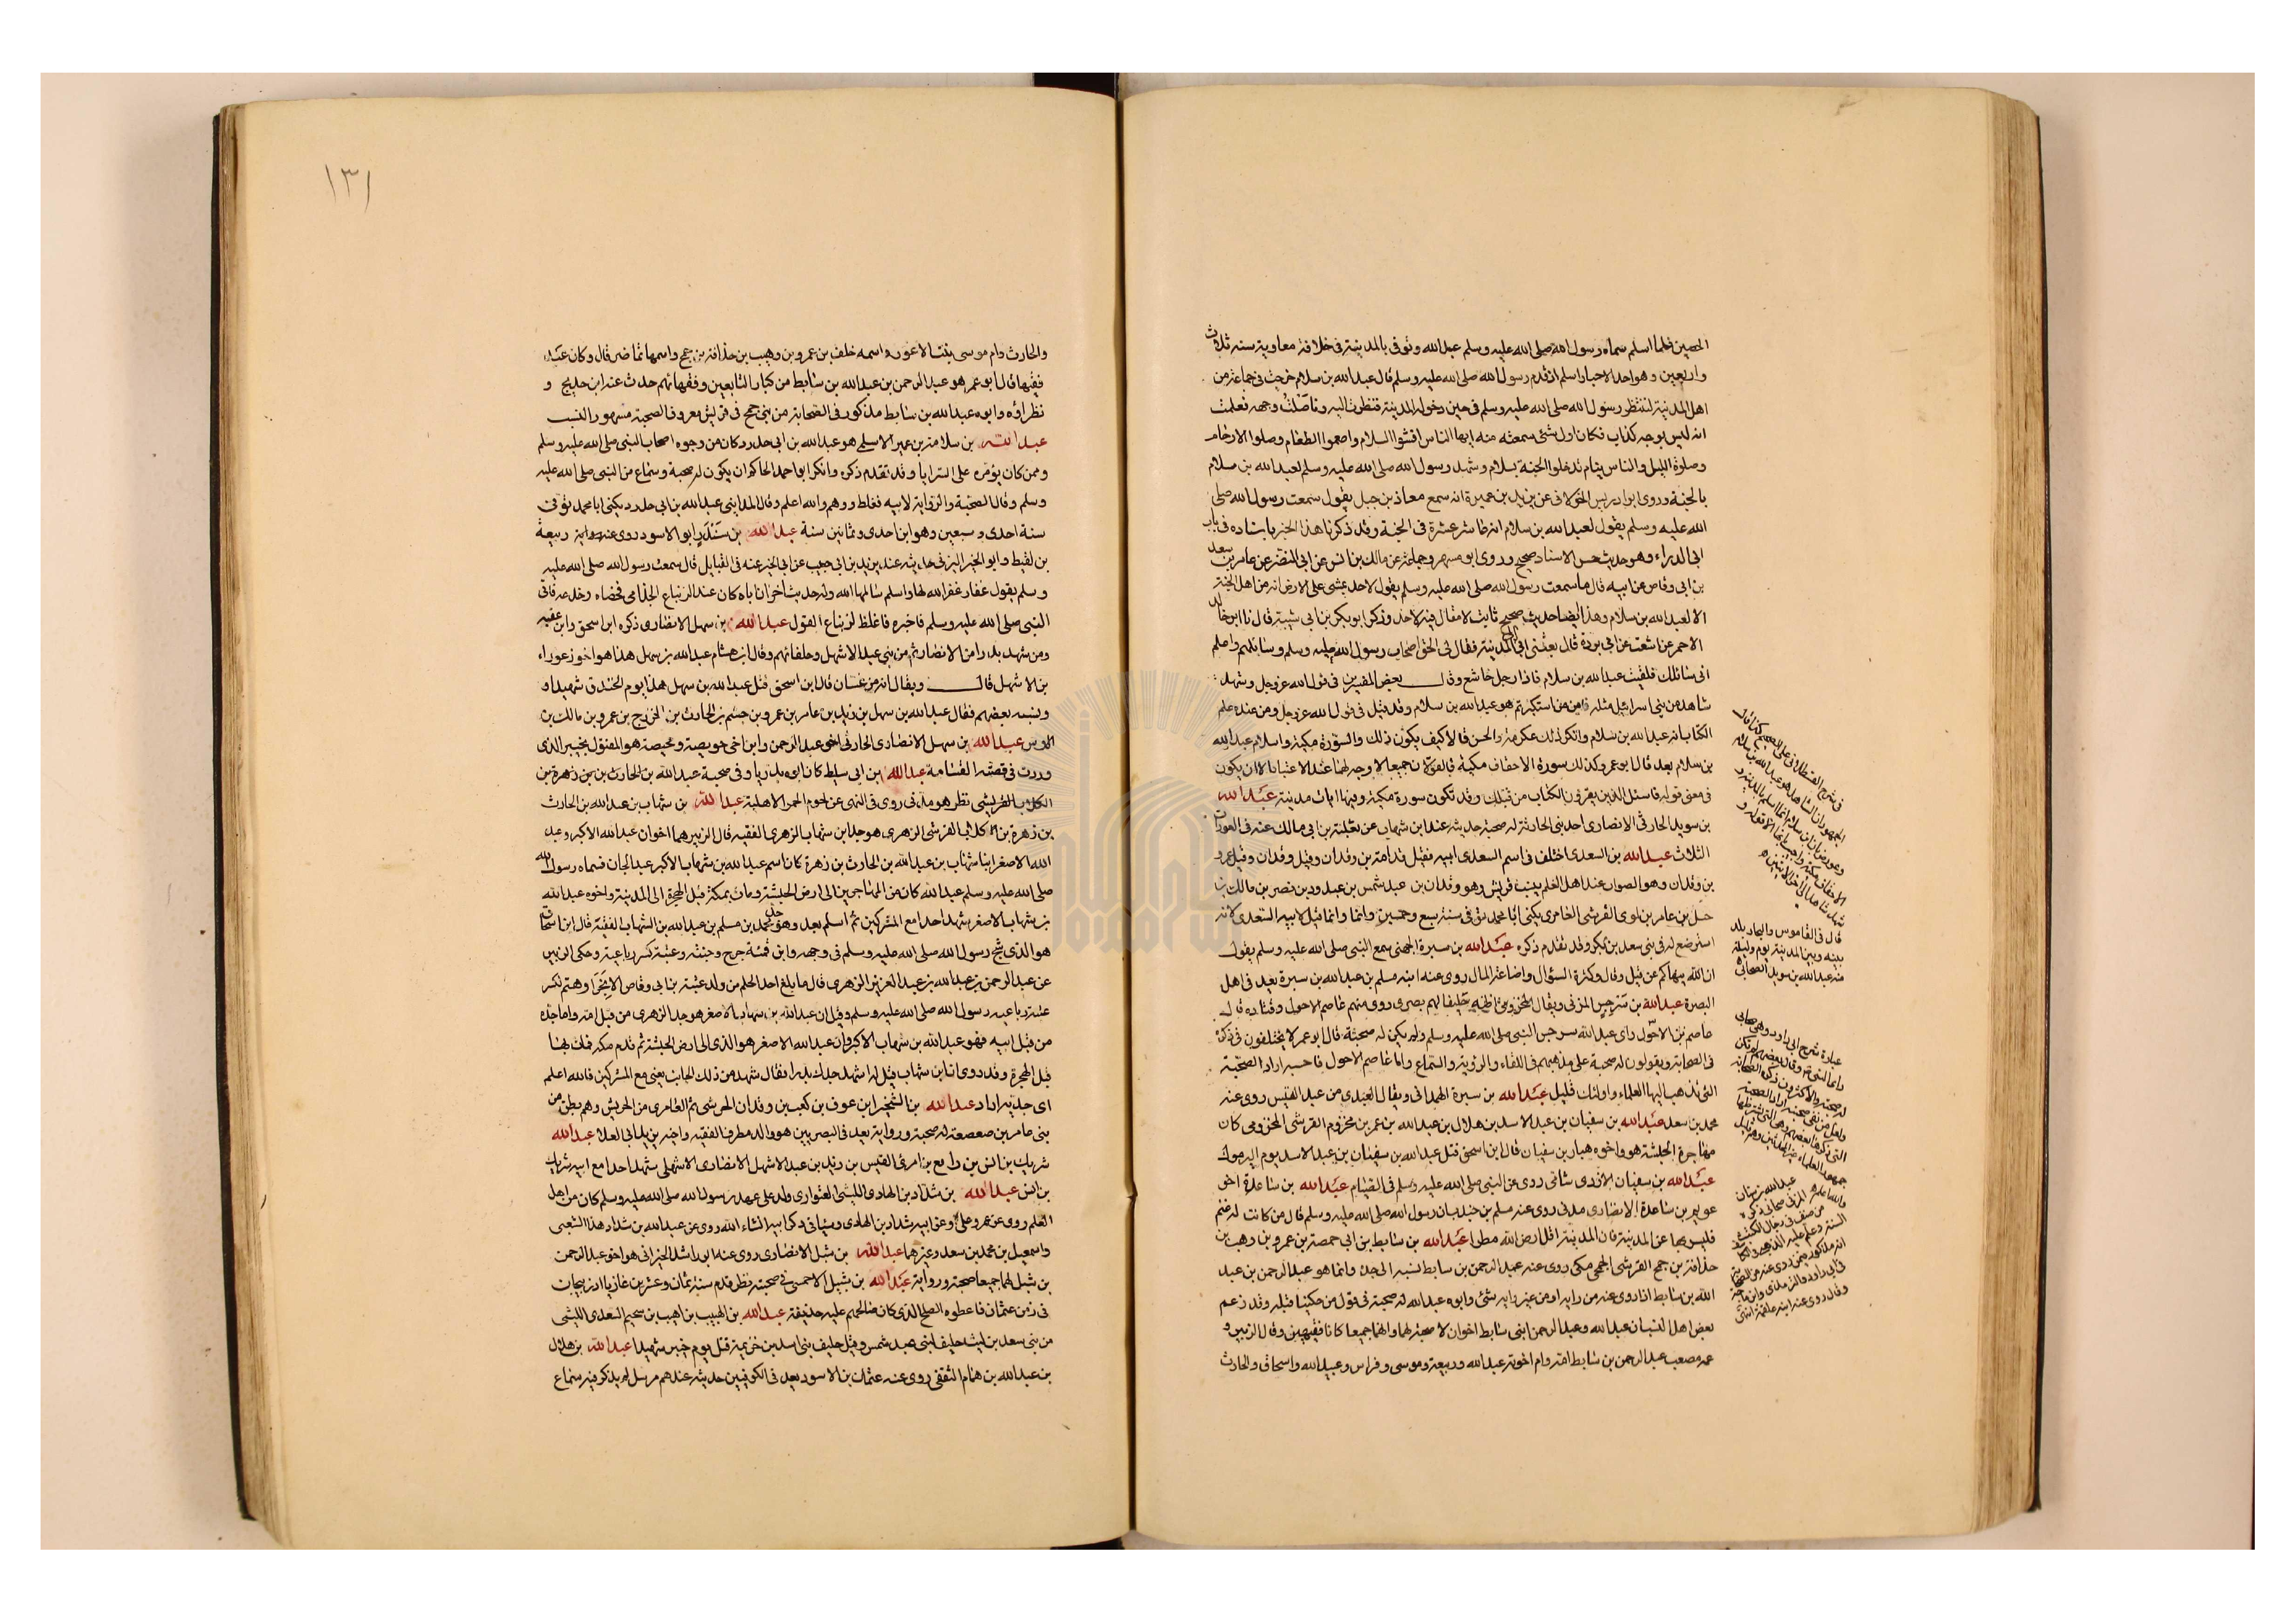 الحصين فلما اسلم سماه رسول الله صلى الله عليه وسلم عبدالله وتوفى بالمدينة فى خلافة معاوية سنة ثلاث
واربعين وهو احد الاحبار اسلم اذ قدم رسول الله صلى الله عليه وسلم قال عبدالله بن سلام خرجت فى جماعة من
اهل المدينة لننظر رسول الله صلى الله عليه وسلم فى حين دخوله المدينة فنظرت اليه وتأملت وجهه فعلمت
انه ليس بوجه كذاب فكان اول شئ سمعته منه ايها الناس افشوا السلام واطعموا الطعام وصلوا الارحام
وصلوة الليل والناس ينام تدخلوا الجنة بسلام وشهد رسول الله صلى الله عليه وسلم لعبدالله بن سلام
بالجنة وروى ابو ادريس الخولانى عن يزيد بن عميرة انه سمع معاذ بن جبل يقول سمعت رسول الله صلى
الله عليه وسلم يقول لعبدالله بن سلام انه عاشر عشرة فى الجنة وقد ذكرنا هذا الخبر باسناده فى باب
ابى الدراء وهو حديث حسن الاسناد صحيح وروى ابو مسهر وجماعة عن مالك بن انس عن ابى النضر عن عامر بن سعد
بن ابى وقاص عن ابيه قال ما سمعت رسول الله صلى الله عليه وسلم يقول لاحد يمشى على الارض انه من اهل الجنة
الا لعبدالله بن سلام وهذا ايضا حديث صحيح ثابت لا مقال فيه لاحد وذكر ابو بكر بن ابى شيبة قال نا ابو خالد
الاحمر عن اشعث عن ابى بردة قال بعثنى ابى الى المدينة فقال لى الحق اصحاب رسول الله صلى الله عليه وسلم وسائلهم واعلم
انى سائلك فلقيت عبدالله بن سلام فاذا رجل خاشع وقال بعض المفسرين فى قول الله عز وجل وشهد
شاهد من بنى اسرائيل على مثله فامن واستكبرتم هو عبدالله بن سلام وقد قيل فى قول الله عز وجل ومن عنده علم
الكتاب انه عبدالله بن سلام وانكر ذلك عكرمة والحسن قالا كيف يكون ذلك والسورة مكية واسلام عبدالله
بن سلام بعد قال ابو عمر وكذلك سورة الاحقاف مكية فالقولان جميعا لا وجه لهما عند الاعتبار الا ان يكون
فى معنى قوله فاسئل الذين يقرؤن الكتاب من قبلك وقد تكون سورة مكية وفيها ايات مدنية عبدالله
بن سويد الحارثى الانصارى احد بنى الحارثة له صحبة حديثه عند ابن شهاب عن ثعلبة بن ابى مالك عنه فى العورات
الثلاث عبدالله بن السعدى اختلف فى اسم السعدى ابيه فقيل قدامة بن وقدان وقيل وقدان وقيل عمرو
بن وقدان وهو الصواب عند اهل العلم بنسب قريش وهو وقدان بن عبد شمس بن عبد ود بن نصر بن مالك بن
حسل بن عامر بن لوى القرشى العامرى يكنى ابا محمد توفى سنة سبع وخمسين وانما قيل لابيه السعدى لانه
استرضع له فى بنى سعد بن بكر وقد تقدم ذكره عبدالله بن سبرة الجهنى سمع النبى صلى الله عليه وسلم يقول
ان الله ينهاكم عن قيل وقال وكثرة السؤال واضاعة المال روى عنه ابنه مسلم بن عبدالله بن سبرة يعد فى اهل
البصرة عبدالله بن سرجس المزنى ويقال المخزومى حليف لهم بصرى روى عنه عاصم الاحول وقتادة قال
عاصم الاحول راى عبدالله سرجس النبى صلى الله عليه وسلم ولم يكن له صحبة قال ابو عمر لا يختلفون فى ذكره
فى الصحابة ويقولون له صحبة على مذهبهم فى اللقاء والرؤية والسماع واما عاصم الاحول فاحسبه اراد الصحبة
التى يذهب اليها العلماء واولئك قليل عبدالله بن سبرة الهمدانى ويقال العبدى من عبد القيس روى عنه
محمد بن سعد عبدالله بن سفيان بن عبد الاسد بن هلال بن عبدالله بن عمر بن مخزوم القرشى المخزومى كان
مهاجرة الحبشة هو واخوه هبار بن سفيان قال ابن اسحق قتل عبدالله بن سفيان بن عبد الاسد يوم اليرموك
عبدالله بن سفيان الازدى شامى روى عن النبى صلى الله عليه وسلم فى الصيام عبدالله بن ساعدة اخو
عويم بن ساعدة الانصارى مدنى روى عنه مسلم بن جندب ان رسول الله صلى الله عليه وسلم قال من كانت له غنم
فليس بها عن المدينة فان المدينة اقل ارض الله مطرا عبدالله بن سابط بن ابى حمصة بن عمرو بن وهب بن
حذافة بن جمح القرشى الجمحى مكى روى عنه عبد الرحمن بن سابط نسبه الى جده وانما هو عبد الرحمن بن عبد
الله بن سابط
بعض اهل النسب ان عبدالله وعبد الرحمن ابنى سابط اخوان لا صحبة لهما وانهما جميعا كانا فقيهين وقال الزبير و
عمه مصعب عبد الرحمن بن سابط امه وام اخوته عبدالله وربيعة وموسى وفراس وعبيدالله واسحاق والحارث
قال فى القاموس
بينه وبين المدينة يوم وليلة
منه عبدالله بن سويد الصحابى
١٣١
والحارث وام موسى بنت الاعور واسمه خلف بن عمرو بن وهيب بن حذافة بن جمح واسمها تماضر قال وكان عبد
فقيها قال ابو عمر هو عبد الرحمن بن عبدالله بن سابط من كبار التابعين وفقهائهم حدث عنه ابن جريج و
نظراؤه وابوه عبدالله بن سابط مذكور فى الصحابة من بنى جمح فى قريش معروف الصحبة مشهور النسب
عبدالله بن سلامة بن عمير الاسلمى هو عبدالله بن ابى حدرد كان من وجوه اصحاب النبى صلى الله عليه وسلم
وممن كان يؤمره على السرايا وقد تقدم ذكره وانكر ابو احمد الحاكم ان يكون له صحبة وسماع من النبى صلى الله عليه
وسلم وقال الصحبة والرواية لابيه فغلط ووهم والله اعلم وقال المداينى عبدالله بن ابى حدرد يكنى ابا محمد توفى
سنة احدى وسبعين وهو ابن احدى وثمانين سنة عبدالله بن سندر ابو الاسود روى عنه ربيعة
بن لقيط وابو الخير اليزنى حديثه عند يزيد بن ابى حبيب عن ابى الخير عنه فى القبايل قال سمعت رسول الله صلى الله عليه
وسلم يقول غفار غفر الله لها واسلم سالمها الله وله حديث اخر ان اباه كان عند الزنباع الجذامى فخصاه وجدعه فاتى
النبى صلى الله عليه وسلم فاخبره فاغلظ لزنباع القول عبدالله بن سهل الانصارى ذكره ابن اسحق وابن عقبه
ومن شهد بدرا من الانصار ثم من بنى عبد الاشهل وحلفائهم وقال ابن هشام عبدالله بن سهل هذا هو اخو زعوراء
بن الاشهل قال ويقال انه من غسان قال ابن اسحق قتل عبدالله بن سهل هذا يوم الخندق شهيدا و
ونسبه بعضهم فقال عبدالله بن سهل بن زيد بن عامر بن عمرو بن جشم بن الحارث بن الخزرج بن عمرو بن مالك بن
الاوس عبدالله بن سهل الانصارى الحارثى اخو عبد الرحمن وابن اخى حويصة ومحيصة هو المقتول بخيبر الذى
وردت فى قصته القسامة عبدالله بن ابى سليط كان ابوه بدريا وفى صحبة عبدالله
نظر هو مدنى روى فى النهى عن لحوم الحمر الاهلية عبدالله بن شهاب بن عبدالله بن الحارث
بن زهرة بن كلاب القرشى الزهرى هو جد ابن شهاب الزهرى الفقيه قال الزبير هما اخوان عبدالله الاكبر وعبد
الله الاصغر ابنا شهاب بن عبدالله بن الحارث بن زهرة كان اسم عبدالله بن شهاب الاكبر عبد الجان فسماه رسول الله
صلى الله عليه وسلم عبدالله كان من المهاجرين الى ارض الحبشة ومات بمكة قبل الهجرة الى المدينة واخوه عبدالله
بن شهاب الاصغر شهد احدا مع المشركين ثم اسلم بعد وهو جد محمد بن مسلم بن عبدالله بن الشهاب الفقيه قال ابن اسحاق
هو الذى شج رسول الله صلى الله عليه وسلم فى وجهه وابن قمئة جرح وجنته وعتبة كسر رباعيته وحكى الزبير
عن عبد الرحمن بن عبدالله بن عبد العزيز الزهرى قال ما بلغ احد الحلم من ولد عتبة بن ابى وقاص الا بخر او هتم لكسر
عتبة رباعية رسول الله صلى الله عليه وسلم وقيل ان عبدالله بن شهاب الاصغر هو جد الزهرى من قبل امه واما جده
من قبل ابيه فهو عبدالله بن شهاب الاكبر وان عبدالله الاصغر هو الذى الى ارض الحبشة ثم قدم مكة فمات بها
قبل الهجرة وقد روى ان ابن شهاب قيل له اشهد جدك بدرا فقال شهد من ذلك الجانب يعنى مع المشركين فالله اعلم
اى جديه اراد عبدالله بن الشخير ابن عوف بن كعب بن وقدان الحرشى ثم العامرى من الحريش وهم بطن من
بنى عامر بن صعصعة له صحبة ورواية يعد فى البصريين هو والد مطرف الفقيه واخيه يزيد ابى العلا عبدالله
شريك بن انس بن رافع بن امرئ القيس بن زيد بن عبد الاشهل الانصارى الاشهلى شهد احدا مع ابيه شريك
بن انس عبدالله بن شداد بن الهادى الليثى العتوارى ولد على عهد رسول الله صلى الله عليه وسلم كان من اهل
العلم روى عن عمر وعلى وعن ابيه شداد بن الهادى وسياتى ذكر ابيه انشاء الله روى عن عبدالله بن شداد هذا الشعبى
واسمعيل بن محمد بن سعد وغيرهما عبدالله بن شبل الانصارى روى عنه ابو راشد الحبرانى هو اخو عبد الرحمن
بن شبل لهما جميعا صحبة ورواية عبدالله بن شبيل الاحمسى فى صحبته نظر قدم سنة ثمان وعشرين غازيا اذربيجان
فى زمن عثمان فاعطوه الصلح الذى كان صالحهم عليه حذيفة عبدالله بن الهبيب بن اهيب بن سحيم السعدى الليثى
من بنى سعد بن ليث حليف لبنى عبد شمس وقيل حليف بنى اسد بن خزيمة قتل يوم خيبر شهيدا عبدالله بن هلال
بن عبدالله بن همام الثقفى روى عنه عثمان بن الاسود يعد فى الكوفيين حديثه عندهم مرسل لم يذكر فيه سماع